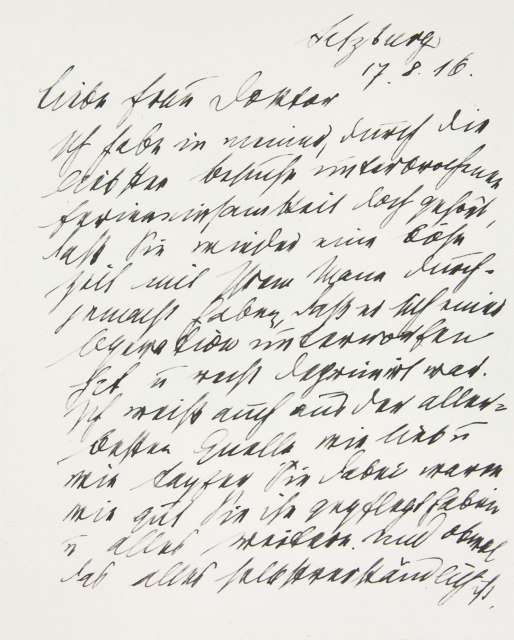 Salzburg
17.8.16.
Liebe Frau Doktor
Ich habe in meiner, durch die
besten Besuche unterbrochenen
Ferieneinsamkeit doch gehört,
daß Sie wieder eine böse
Zeit mit Ihrem Mann durch-
gemacht haben, daß er sich einer
Operation unterworfen
hat u recht deprimirt war.
Ich weiß auch aus der aller-
besten Quelle wie lieb u
wie tapfer Sie dabei waren
wie gut Sie ihn gepflegt haben
u alles weitere. Und obwol
das alles selbstverständlich ist,